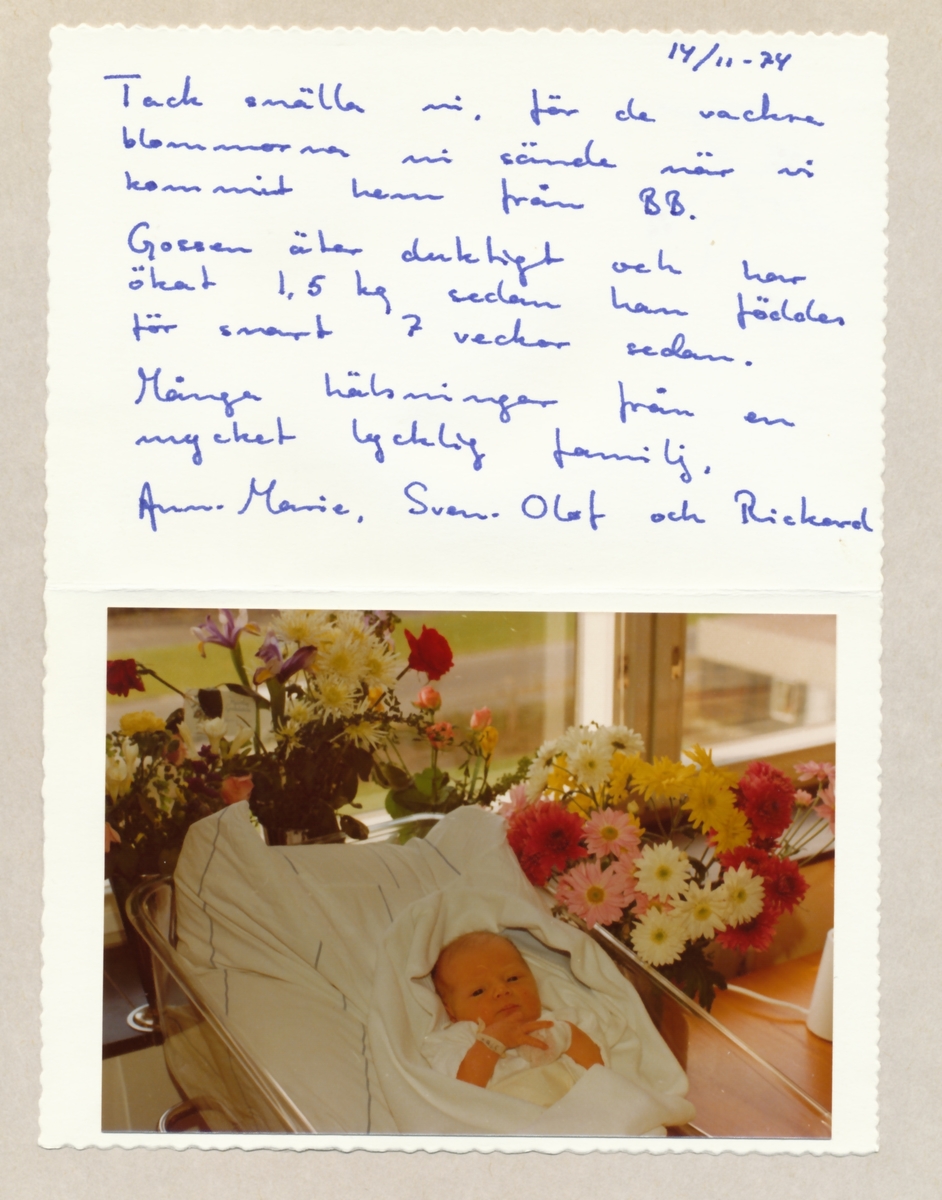 14/11-74
Tack snälla ni, för de vackra
blommorna ni sände när vi
kommit hem från BB.
Gossen äter duktigt och har
ökat 1,5 kg sedan han föddes
för snart 7 veckor sedan.
Många hälsningar från en
mycket lycklig familj,
Ann-Marie, Sven-Olof och Rickard